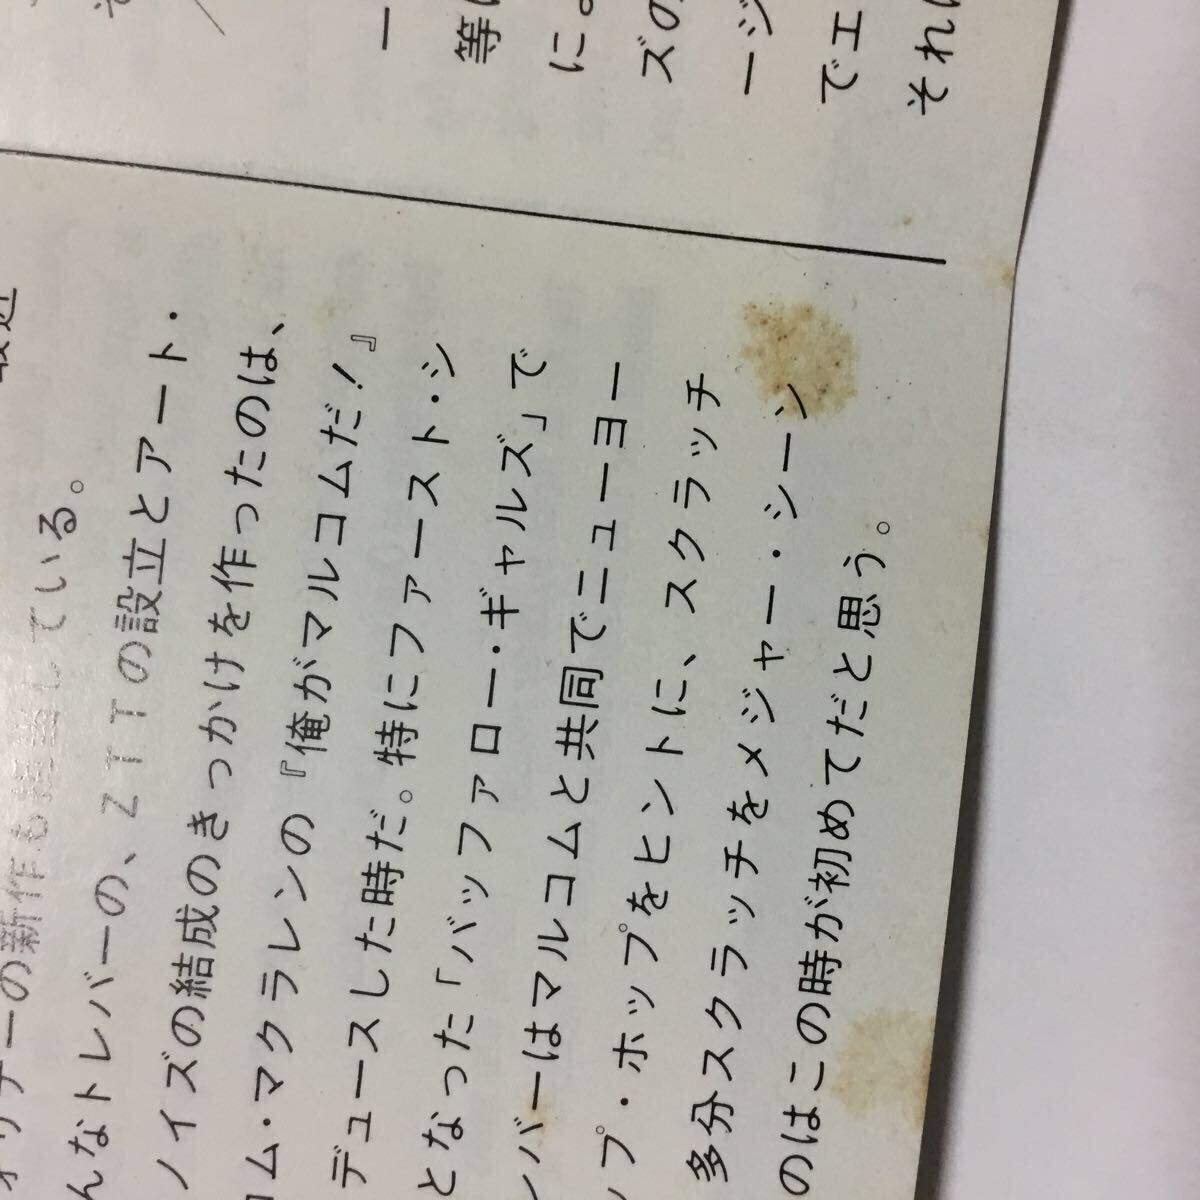 一
等に
に。
ズの
ージ
でエ
それに
ォリナーの新作も担当している。
んなトレバーの、ZTTの設立とアート・
ノイズの結成のきっかけを作ったのは、
コム・マクラレンの『俺がマルコムだ!』
デュースした時だ。特にファースト・シ
となった「バッファロー・ギャルズ」で
ンバーはマルコムと共同でニューヨー
ップ・ホップをヒントに、スクラッチ
多分スクラッチをメジャー・シーン
のはこの時が初めてだと思う。